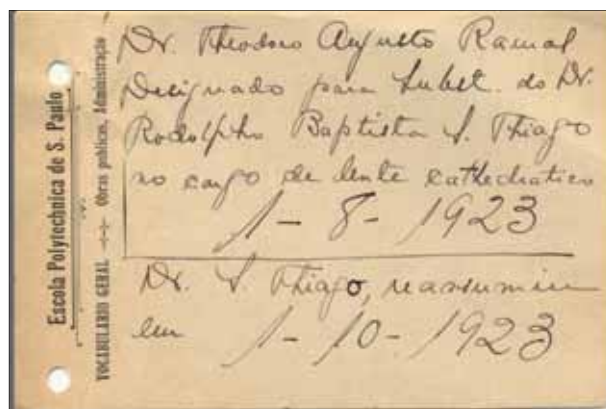 Escola Polytechnica de S. Paulo
VOCABULARIO GERAL -- Obras publicas, Administração
Dr. Theodoro Augusto Ramos
Designado para Subst. do Dr.
Rodolpho Baptista S. Thiago
no cargo de lente cathedratico
1 - 8 - 1923
Dr. S. Thiago, reassumiu
em 1 - 10 - 1923